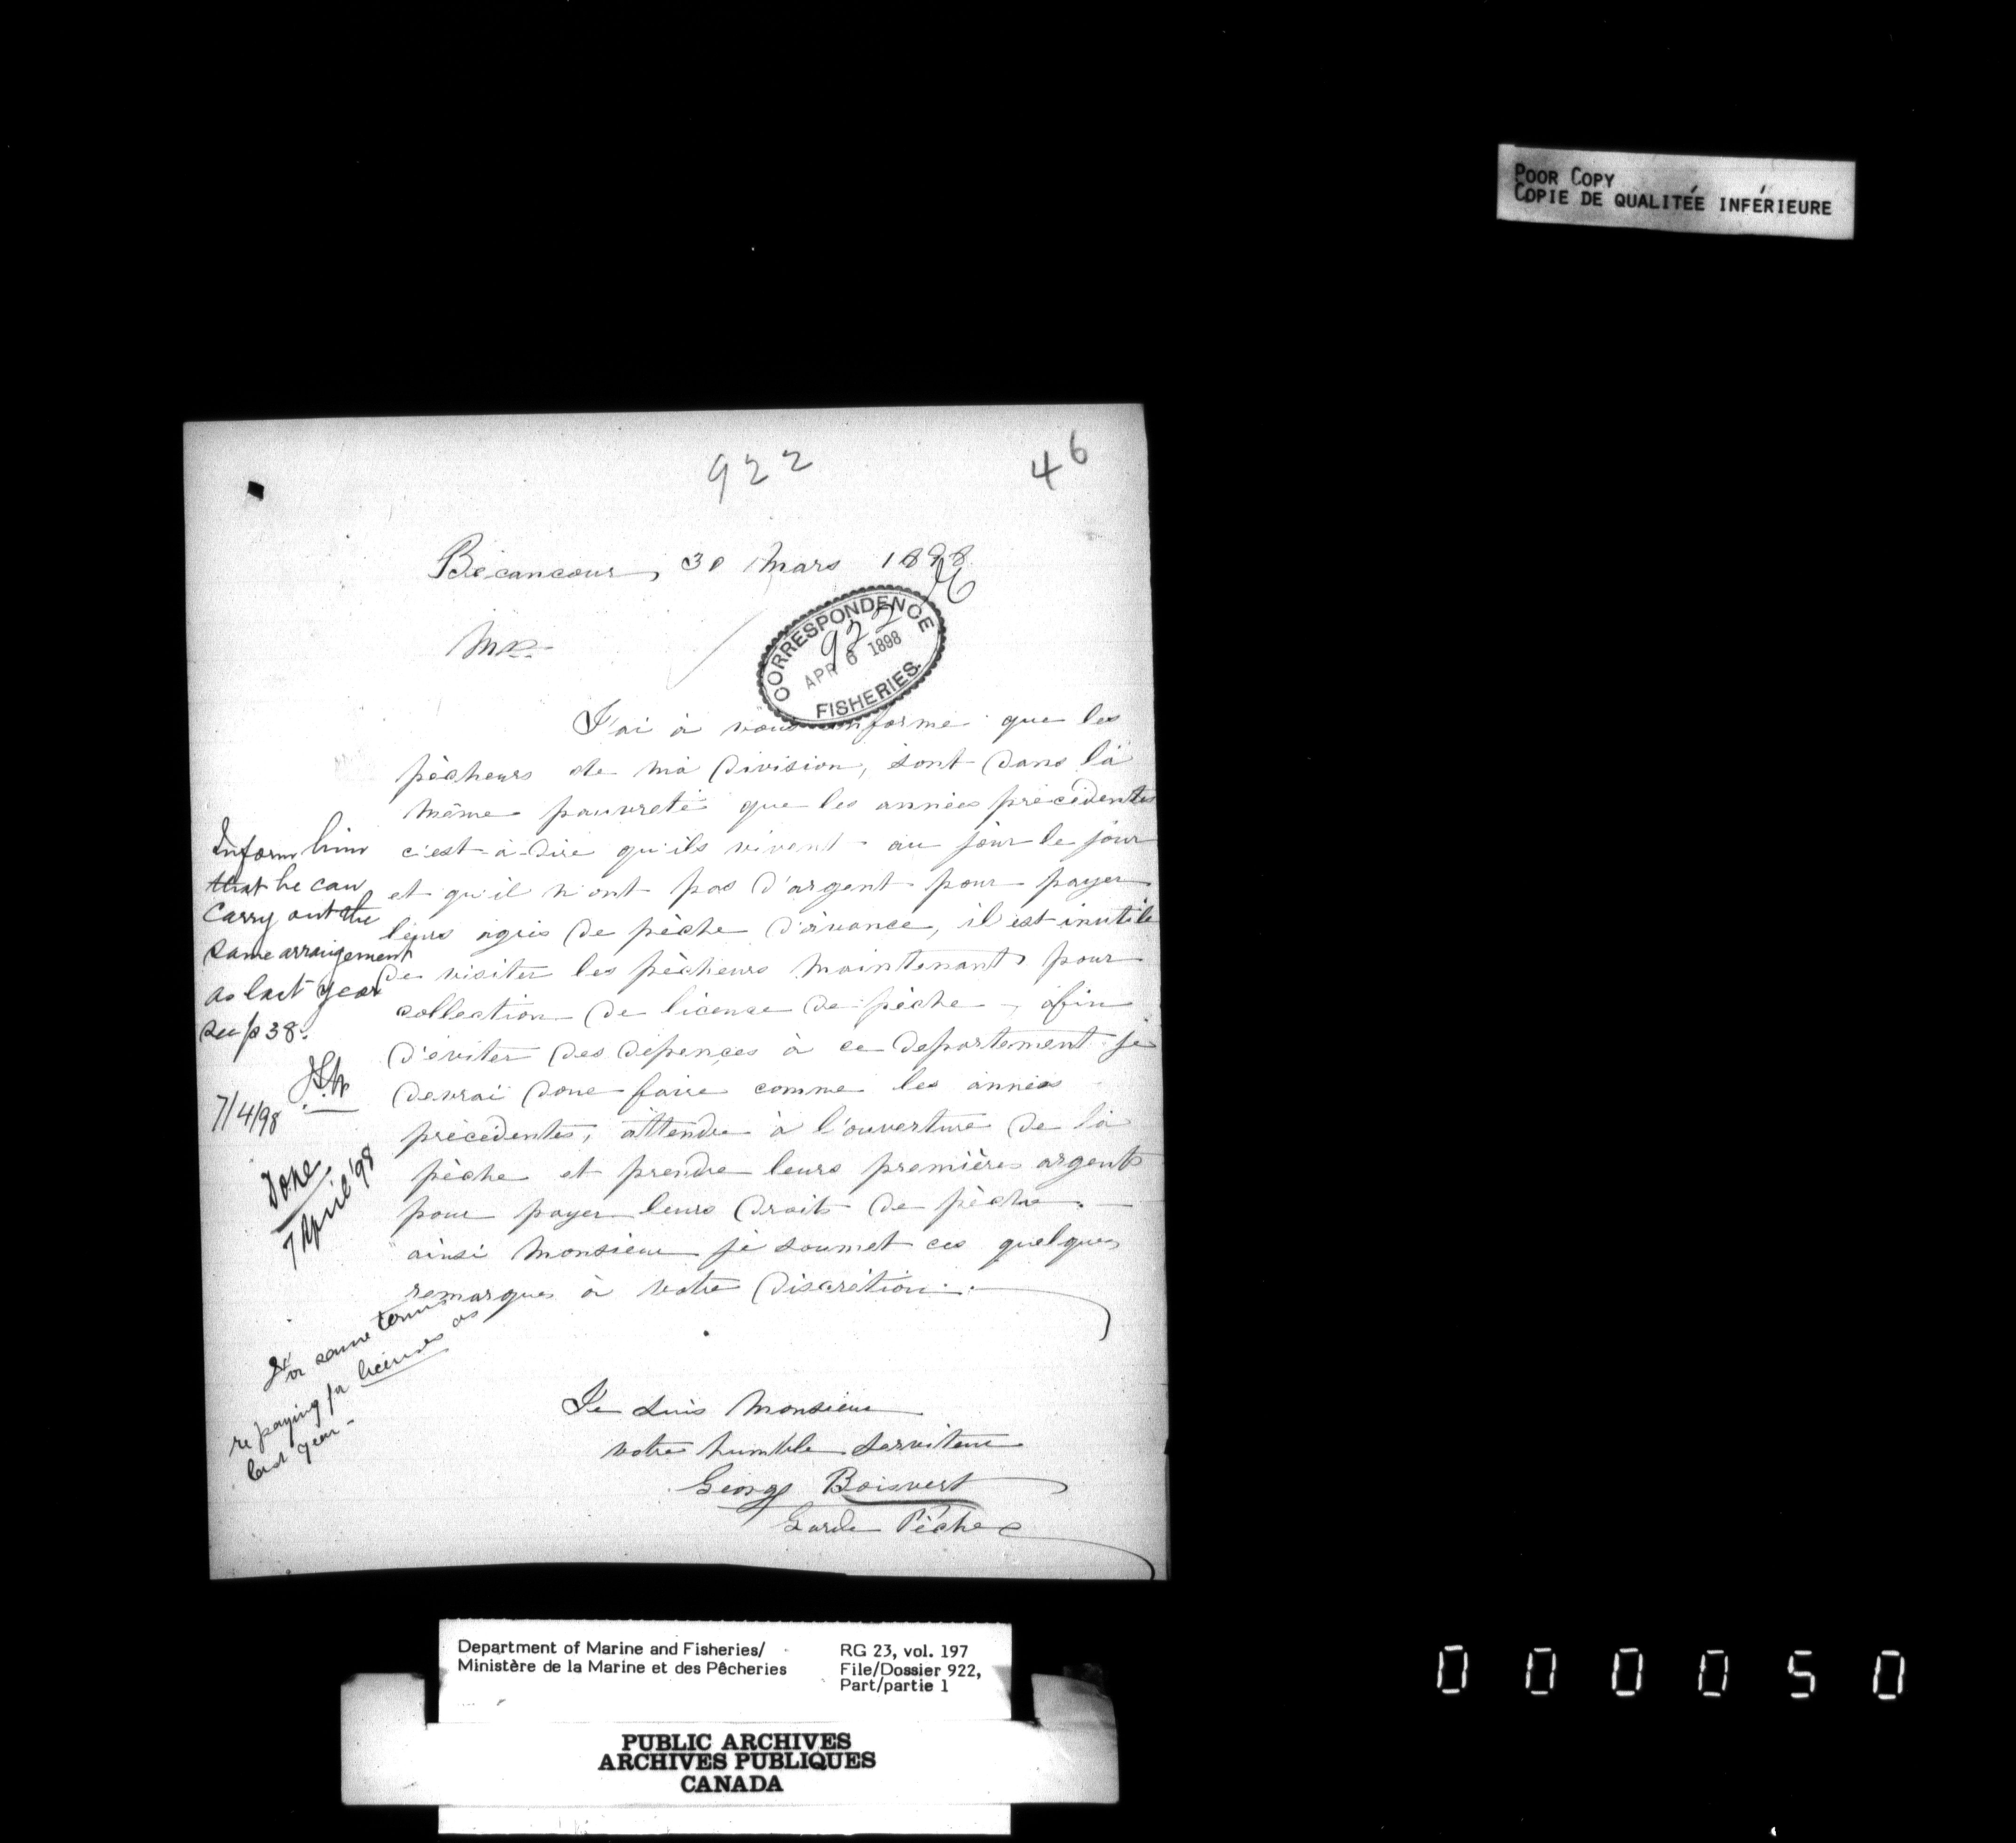 POOR COPY
COPIE DE QUALITÉE INFÉRIEURE
922
46
Bécancour, 30 mars 1898
Mr.
CORRESPONDENCE
922
APR 6 1898
FISHERIES.
J'ai à vous informé que les
pêcheurs de ma division, sont dans la
même pauvreté que les années précédentes
c'est-à-dire qu'ils vivent au jour le jour
et qu'il n'ont pas d'argent pour payer
leurs agris de pêche d'avance, il est inutile
de visiter les pêcheurs maintenant pour
collection de licence de pêche, afin
d'éviter des dépences à ce departement je
devrai donc faire comme les années
précédentes, attendre à l'ouverture de la
pêche et prendre leurs premières argents
pour payer leurs droits de pêche.
ainsi Monsieur je soumet ces quelques
remarques à votre discrétion.
Je suis Monsieur
votre humble serviteur
George Boisvert
Garde Pêche
Inform him
that he can
carry out the
same arrangement
as last year
see p 38.
7/4/98
Done
7 April '98
For same terms
re paying for licenses as
last year-
Department of Marine and Fisheries/
Ministère de la Marine et des Pêcheries
RG 23, vol. 197
File/Dossier 922,
Part/partie 1
PUBLIC ARCHIVES
ARCHIVES PUBLIQUES
CANADA
000050